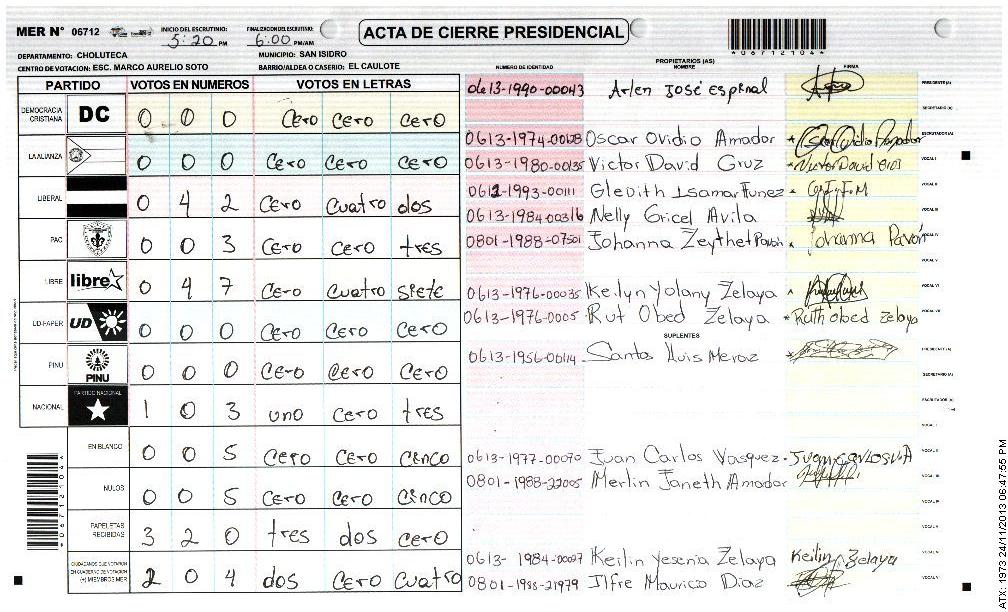 MER N° 06712 INICIO DEL ESCRUTINIO: 5:20 PM FINALIZACION DEL ESCRUTINIO: 6:00 PM/AM
ACTA DE CIERRE PRESIDENCIAL
*067121044*
DEPARTAMENTO: CHOLUTECA MUNICIPIO: SAN ISIDRO
CENTRO DE VOTACION: ESC. MARCO AURELIO SOTO BARRIO/ALDEA O CASERIO: EL CAULOTE
PARTIDO VOTOS EN NUMEROS VOTOS EN LETRAS
DEMOCRACIA CRISTIANA DC 0 0 0 Cero cero cero
LA ALIANZA 0 0 0 cero cero cero
LIBERAL 0 4 2 cero cuatro dos
PAC 0 0 3 cero cero tres
LIBRE libre 0 4 7 cero cuatro siete
UD-FAPER UD 0 0 0 cero cero cero
PINU PINU 0 0 0 cero cero cero
NACIONAL PARTIDO NACIONAL 1 0 3 uno cero tres
EN BLANCO 0 0 5 cero cero cinco
NULOS 0 0 5 cero cero cinco
PAPELETAS RECIBIDAS 3 2 0 tres dos cero
CIUDADANOS QUE VOTARON EN CUADERNO DE VOTACION (+) MIEMBROS MER 2 0 4 dos cero cuatro
*067121044*
PROPIETARIOS (AS)
NUMERO DE IDENTIDAD NOMBRE FIRMA
0613-1990-00043 Arlen José Espinal PRESIDENTE (A)
SECRETARIO (A)
0613-1974-00068 Oscar Ovidio Amador Oscar Ovidio Amador ESCRUTADOR (A)
0613-1980-00135 Victor David Cruz Victor David VOCAL I
0612-1993-00111 Gledith Isamar Funez VOCAL II
0613-1984-00316 Nelly Gricel Avila VOCAL III
0801-1988-07501 Johanna Zeythet Pavon Johanna Pavón VOCAL IV
VOCAL V
0613-1976-00035 Keilyn Yolany Zelaya VOCAL VI
0613-1976-0005 Rut Obed Zelaya Ruth Obed Zelaya VOCAL VII
SUPLENTES
0613-1956-00114 Santos Luis Meraz PRESIDENTE (A)
SECRETARIO (A)
ESCRUTADOR (A)
VOCAL I
0613-1977-00070 Juan Carlos Vasquez Juan Carlos VOCAL II
0801-1988-22005 Merlin Janeth Amador VOCAL III
VOCAL IV
VOCAL V
0613-1984-0007 Keilin Yesenia Zelaya Keilin Zelaya
0801-1988-21979 Ilfre Maurico Diaz VOCAL VI
ATX: 1973 24/11/2013 06:47:55 PM